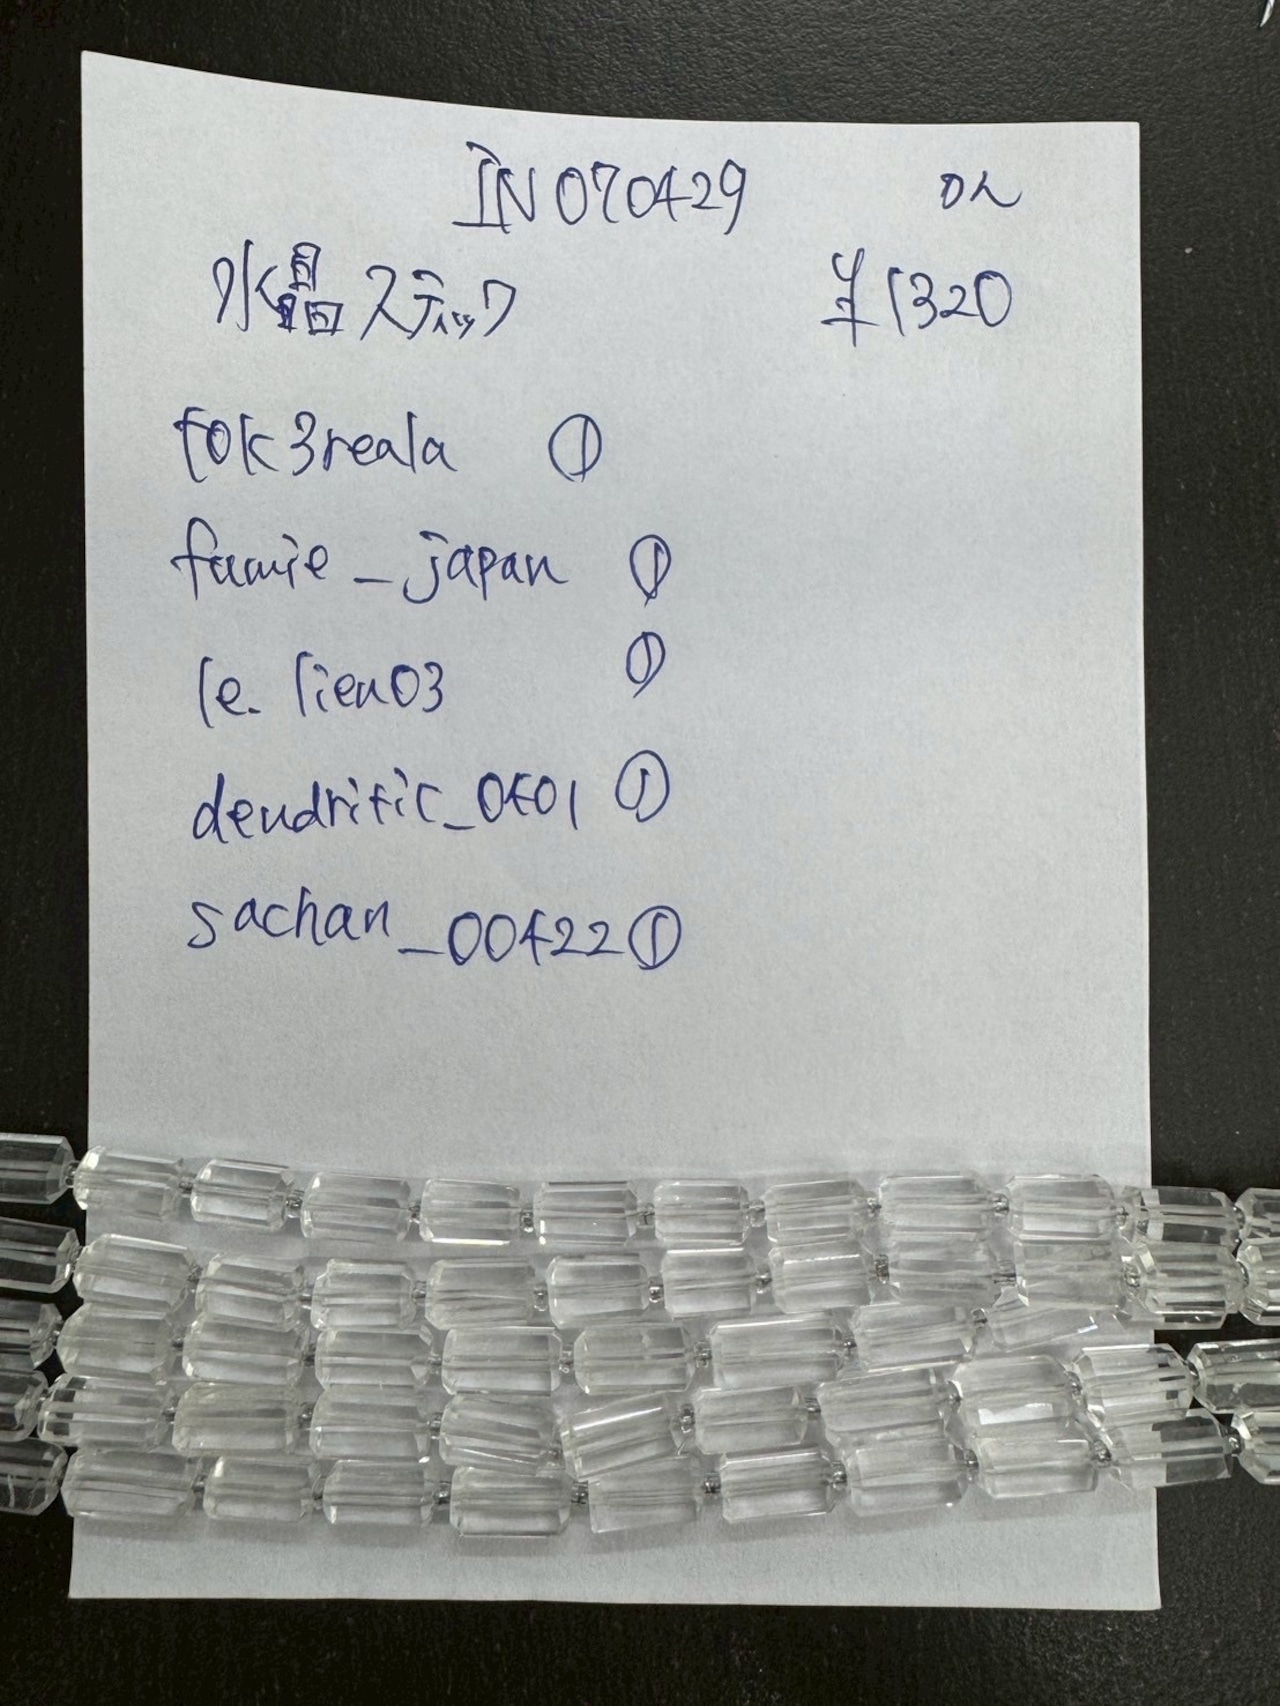 IN070429 DL
水晶スティック ¥1320
tok3reala ①
famie_japan ①
le.lien03 ①
dendritic_0401 ①
sachan_00422 ①